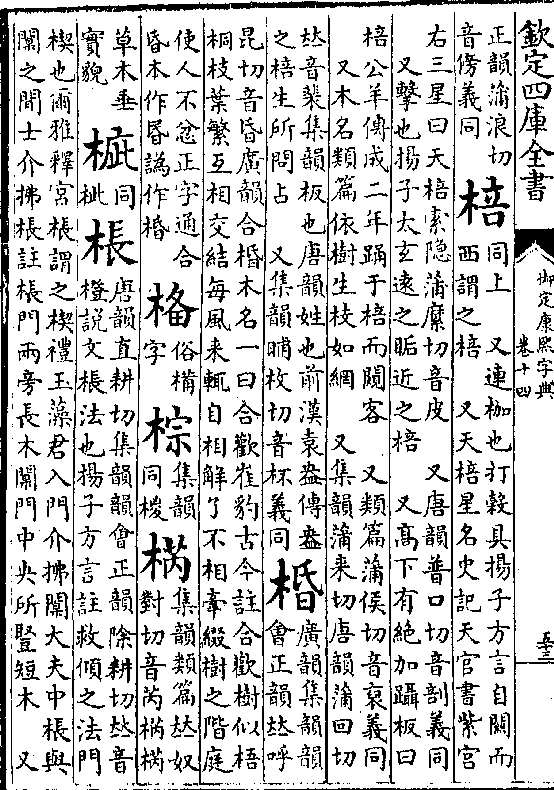 欽定四庫全書
御定康熙字典
卷十四
正韻蒲浪切
音傍義同
棓
同上　又連枷也打穀具揚子方言自關而
西謂之棓　又天棓星名史記天官書紫宮
右三星曰天棓索隐蒲縻切音皮　又唐韻普口切音剖義同
又擊也揚子太玄逺之䀢近之棓　又髙下有絶加躡板曰
棓公羊傳成二年踊于棓而闚客　又類篇蒲侯切音裒義同
又木名類篇依樹生枝如網　又集韻蒲来切唐韻蒲回切
𠀤音裴集韻板也唐韻姓也前漢袁盎傳盎
之棓生所問占　又集韻晡枚切音杯義同
棔
廣韻集韻韻
會正韻𠀤呼
昆切音昏廣韻合棔木名一曰合歡崔豹古今註合歡樹似梧
桐枝葉繁互相交結每風来輒自相解了不相牽綴樹之階庭
使人不忿正字通合
昏本作昬譌作棔
𣓌
俗楕
字
棕
集韻
同椶
㭆
集韻類篇𠀤奴
對切音芮㭆㭆
草木垂
實貌
樦
同
桋
棖
唐韻直耕切集韻韻會正韻除耕切𠀤音
橙説文棖法也揚子方言註救傾之法門
楔也爾雅釋宫棖謂之楔禮玉藻君入門介拂闑大夫中棖與
闑之間士介拂棖註棖門兩旁長木闑門中央所豎短木　又